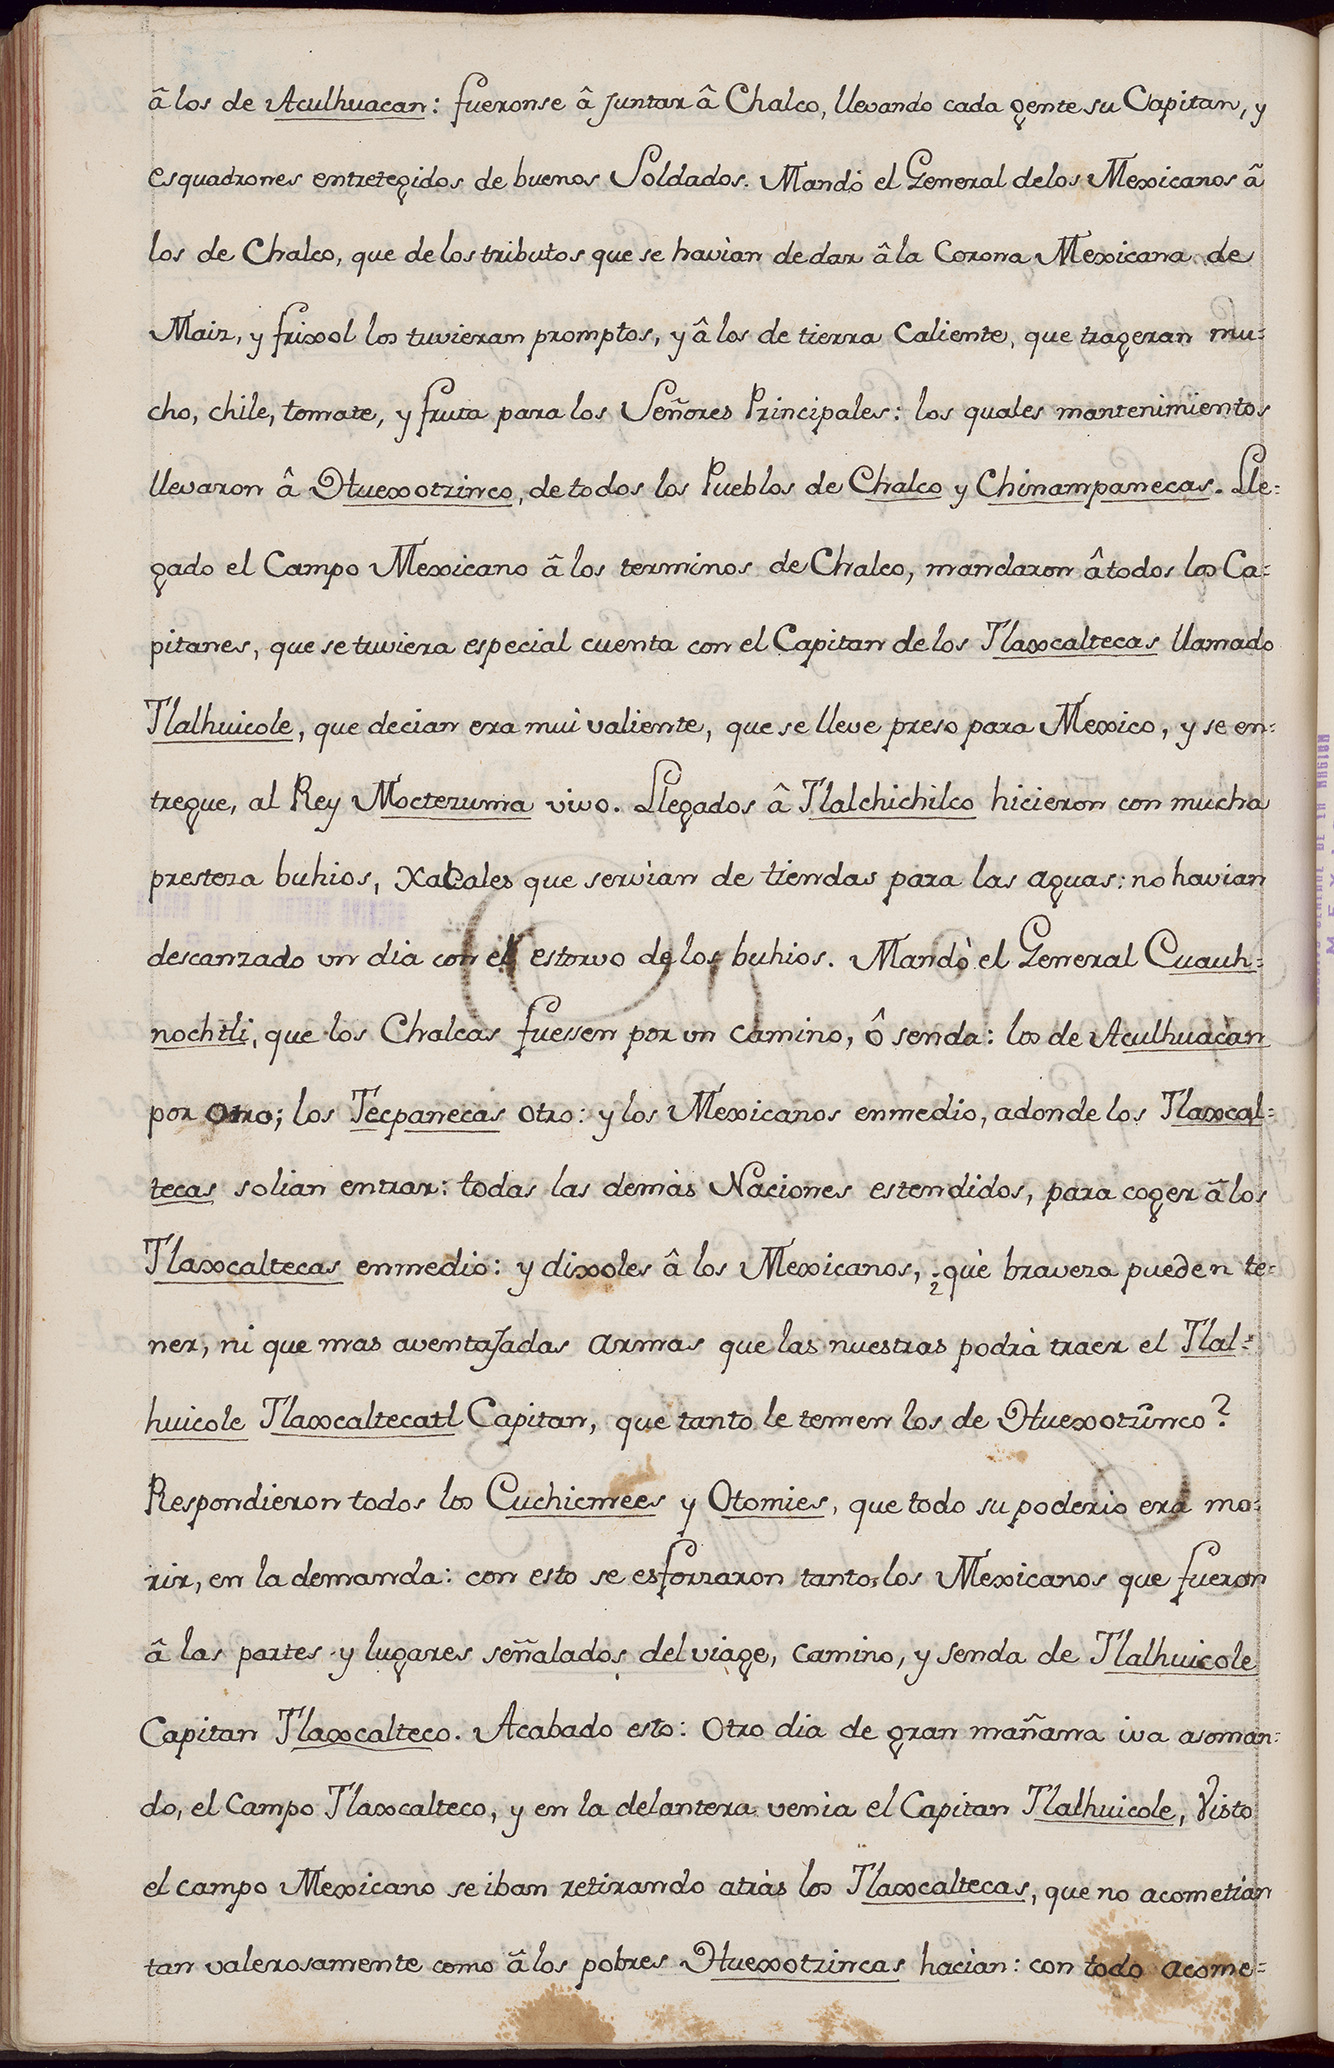 â los de Aculhuacan: fueronse â juntar â Chalco, llevando cada gente su Capitan, y
esquadrones entretegidos de buenos Soldados. Mandò el General delos Mexicanos â
los de Chalco, que de los tributos que se havian de dar â la Corona Mexicana de
Maiz, y frixol los tuvieran promptos, y â los de tierra caliente, que trageran mu=
cho, chile, tomate, y fruta para los Señores Principales: los quales mantenimientos
llevaron â Huexotzinco, de todos los Pueblos de Chalco y Chinampanecas. Lle=
gado el Campo Mexicano â los terminos de Chalco, mandaron â todos los Ca=
pitanes, que se tuviera especial cuenta con el Capitan de los Tlaxcaltecas llamado
Tlalhuicole, que decian era mui valiente, que se lleve preso para Mexico, y se en=
tregue, al Rey Moctezuma vivo. Llegados â Tlalchichilco hicieron con mucha
presteza buhios, Xacales que servian de tiendas para las aguas: no havian
descanzado un dia con el estorvo de los buhios. Mandò el General Cuauh=
nochtli, que los Chalcas fuessen por un camino, ô senda: los de Aculhuacan
por otro; los Tecpanecas otro: y los Mexicanos enmedio, adonde los Tlaxcal=
tecas solian entrar: todas las demàs Naciones estendidos, para coger â los
Tlaxcaltecas enmedio: y dixoles â los Mexicanos, ¿què braveza pueden te=
ner, ni que mas aventajadas armas que las nuestras podrà traer el Tlal=
huicole Tlaxcaltecatl Capitan, que tanto le temen los de Huexotzinco?
Respondieron todos los Cuchicmees y Otomies, que todo su poderio era mo=
rir, en la demanda: con esto se esforzaron tanto, los Mexicanos que fueron
â las partes y lugares señalados del viage, camino, y senda de Tlalhuicole
Capitan Tlaxcalteco. Acabado esto: otro dia de gran mañana iva asoman=
do, el Campo Tlaxcalteco, y en la delantera venia el Capitan Tlalhuicole, Visto
el campo Mexicano se iban retirando atràs los Tlaxcaltecas, que no acometian
tan valerosamente como â los pobres Huexotzincas hacian: con todo acome=